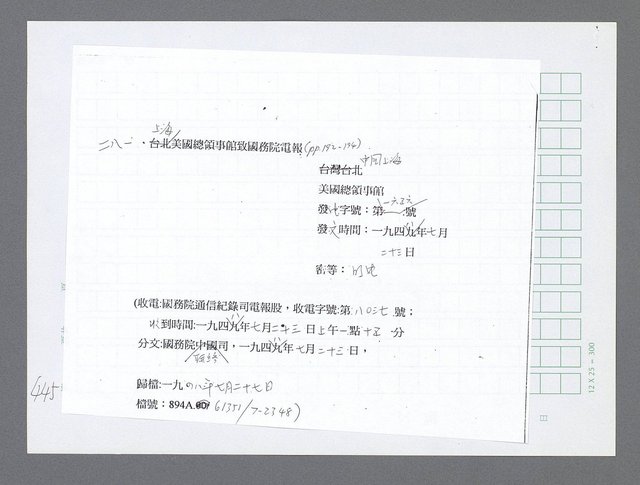 上海
二八一、台北美國總領事館致國務院電報(pp.192-194)
中国上海
台灣台北
美國總領事館
發電字號：第一六五六號
發文時間：一九四九年七月
二十三日
密等：
(收電:國務院通信紀錄司電報股，收電字號:第八〇三七號；
收到時間:一九四九年七月二十三日上午一點十五分
分文:國務院中國司，一九四九年七月二十三日，
歸檔:一九四八年七月二十七日
檔號：894A.00/61351/7-2348)
(445
12 X 25 = 300